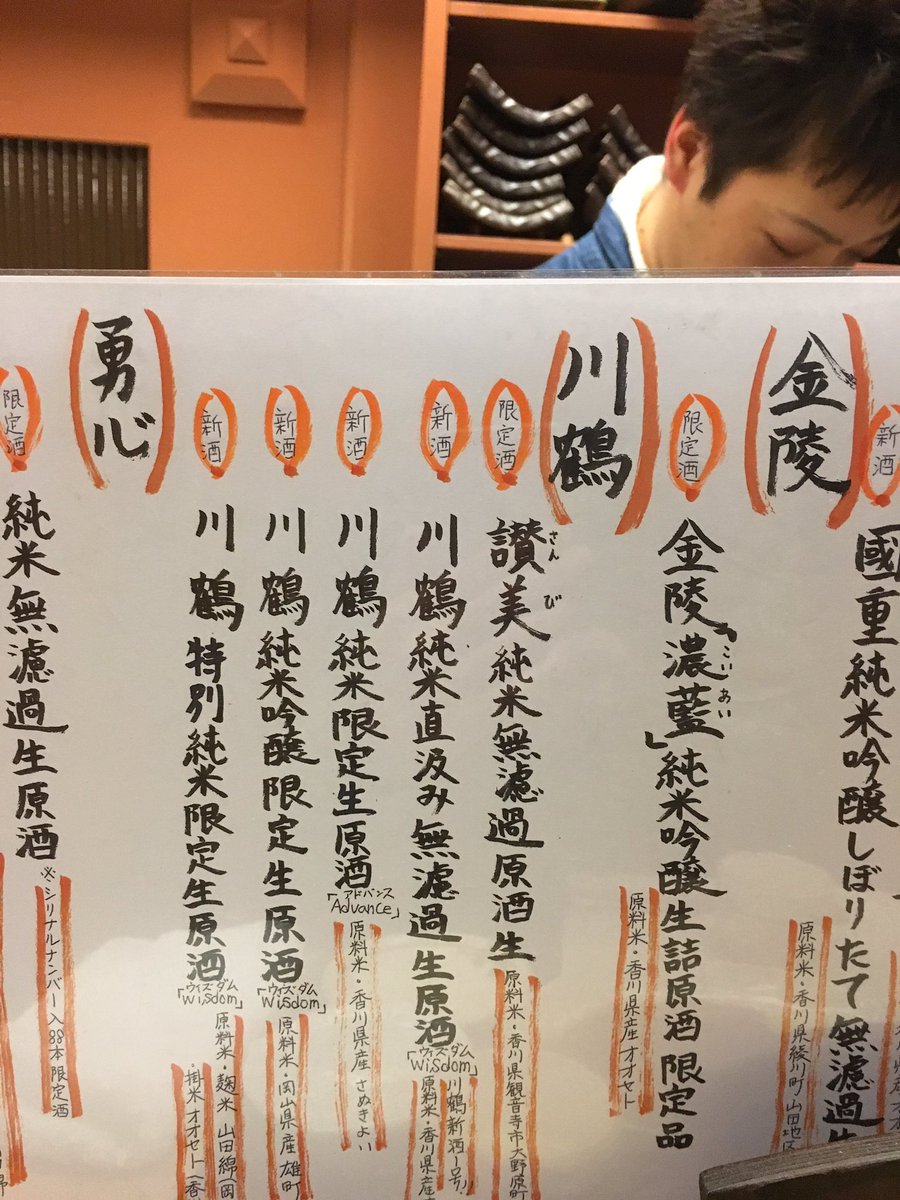 金陵
新酒
國重純米吟醸しぼりたて無濾過生
原料米・香川県綾川町山田地区
限定酒
金陵「濃藍」純米吟醸生詰原酒限定品
こいあい
原料米・香川県産オオセト
川鶴
限定酒
讃美純米無濾過原酒生
さんび
原料米・香川県観音寺市大野原町
新酒
川鶴純米直汲み無濾過生原酒
ウィズダム
「Wisdom」
川鶴新酒1号
原料米・香川県産
新酒
川鶴純米限定生原酒
アドバンス
「Advance」
原料米・香川県産さぬきよい
新酒
川鶴純米吟醸限定生原酒
ウィズダム
「Wisdom」
原料米・岡山県産雄町
新酒
川鶴特別純米限定生原酒
ウィズダム
「Wisdom」
原料米・麹米 山田錦(岡
・掛米オオセト(香
勇心
限定酒
純米無濾過生原酒
※シリナルナンバー入88本限定酒